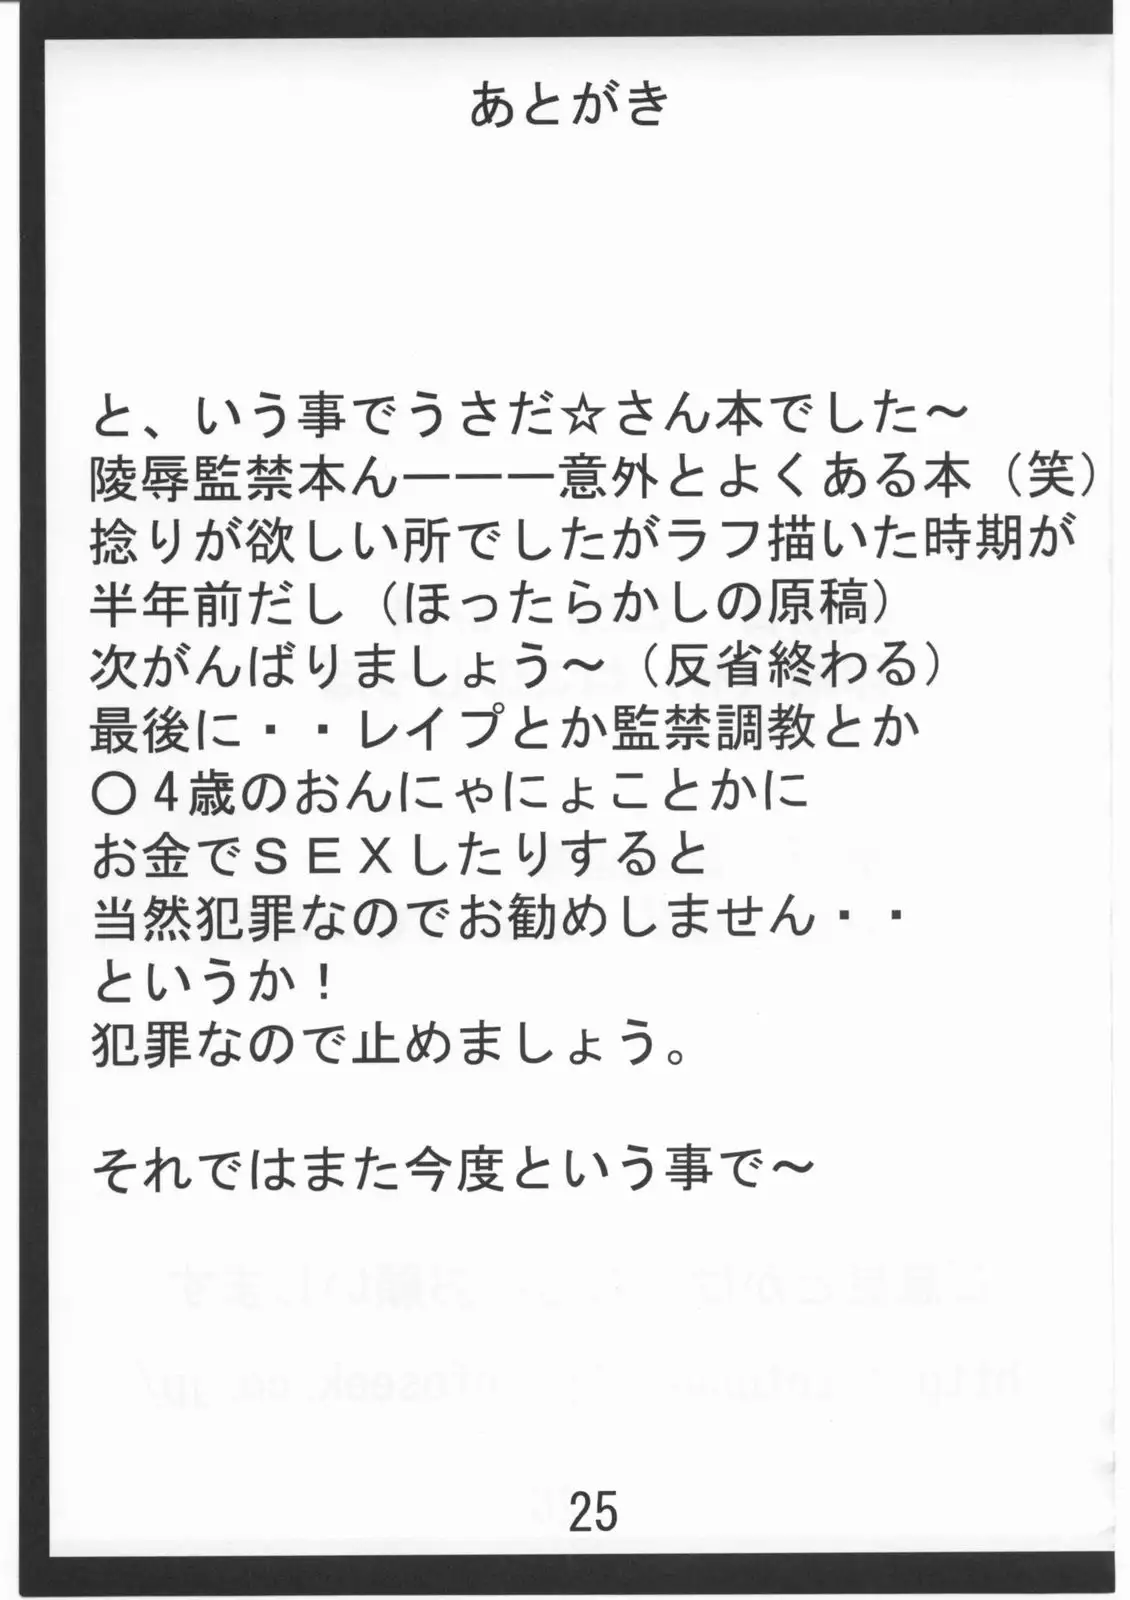 あとがき
と、いう事でうさだ☆さん本でした～
陵辱監禁本んーーー意外とよくある本（笑）
捻りが欲しい所でしたがラフ描いた時期が
半年前だし（ほったらかしの原稿）
次がんばりましょう～（反省終わる）
最後に・・レイプとか監禁調教とか
〇4歳のおんにゃにょことかに
お金でＳＥＸしたりすると
当然犯罪なのでお勧めしません・・
というか！
犯罪なので止めましょう。
それではまた今度という事で～
25